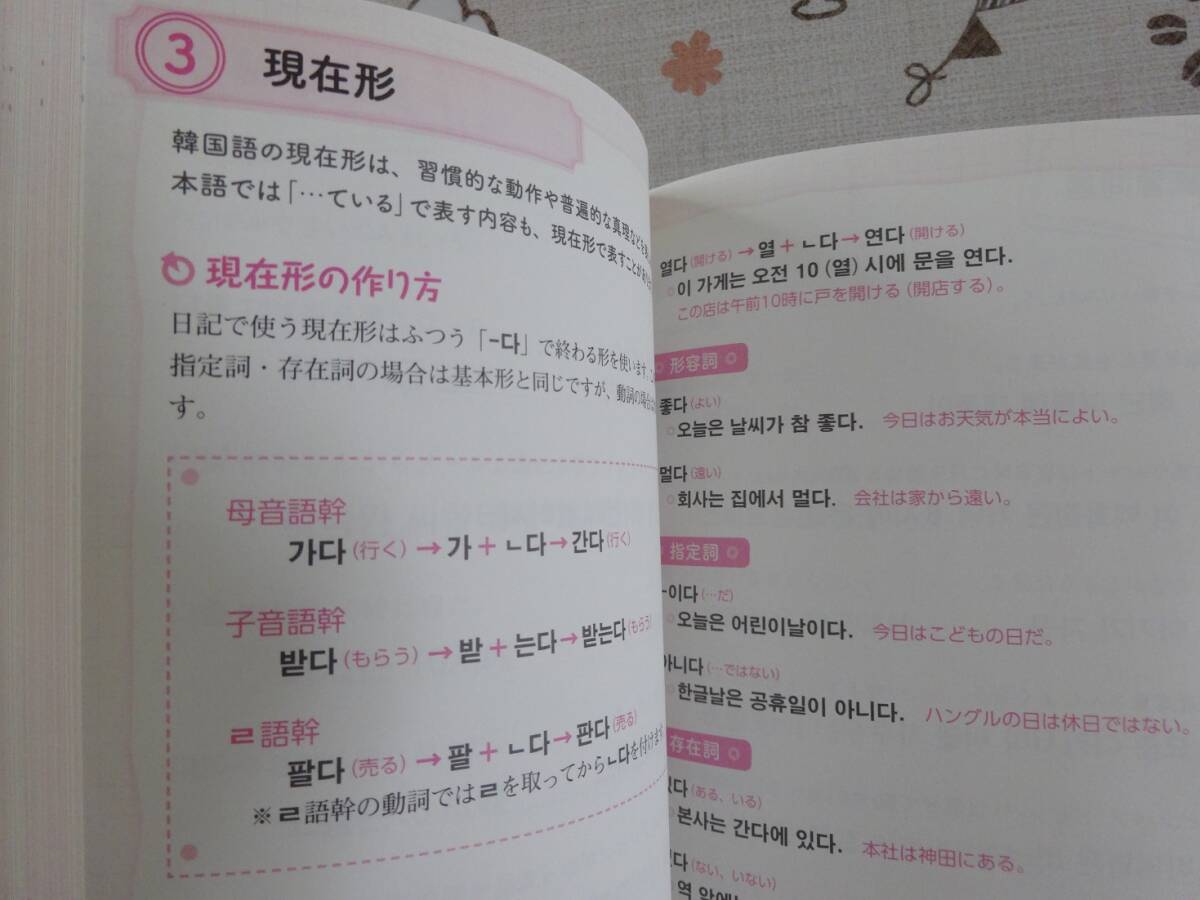 3 現在形
韓国語の現在形は、習慣的な動作や普遍的な真理などを
本語では「…ている」で表す内容も、現在形で表すことが
現在形の作り方
日記で使う現在形はふつう「-다」で終わる形を使います。
指定詞・存在詞の場合は基本形と同じですが、動詞の場合
す。
母音語幹
가다(行く)→가+ㄴ다→간다(行く)
子音語幹
받다(もらう)→받+는다→받는다(もらう)
ㄹ語幹
팔다(売る)→팔+ㄴ다→판다(売る)
※ㄹ語幹の動詞ではㄹを取ってからㄴ다を付けます
열다(開ける)→열+ㄴ다→연다(開ける)
이 가게는 오전 10(열)시에 문을 연다.
この店は午前10時に戸を開ける(開店する)。
形容詞
좋다(よい)
오늘은 날씨가 참 좋다. 今日はお天気が本当によい。
멀다(遠い)
회사는 집에서 멀다. 会社は家から遠い。
指定詞
-이다(…だ)
오늘은 어린이날이다. 今日はこどもの日だ。
아니다(…ではない)
한글날은 공휴일이 아니다. ハングルの日は休日ではない。
存在詞
있다(ある、いる)
본사는 간다에 있다. 本社は神田にある。
(ない、いない)
역 앞에